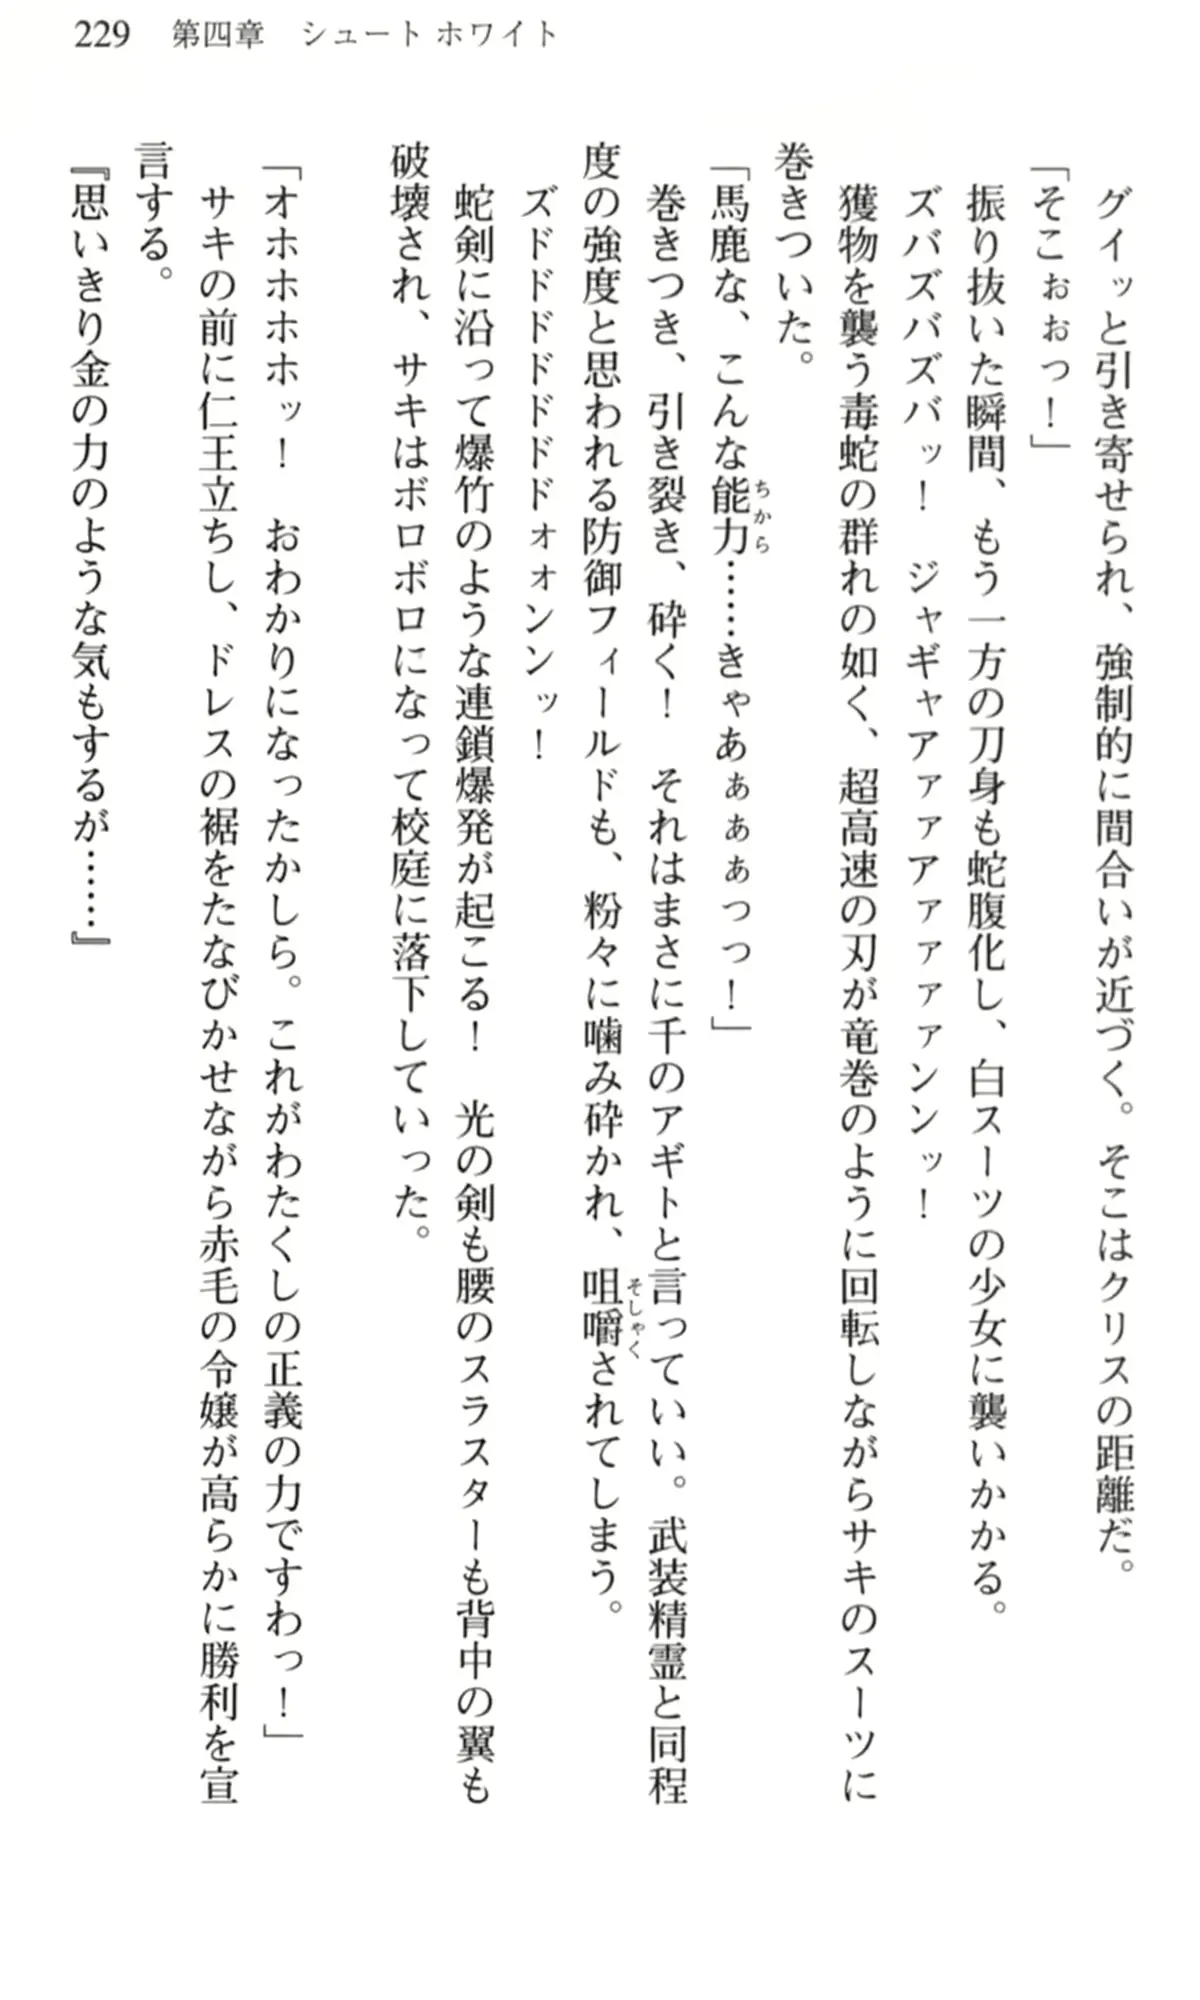 229　第四章　シュート ホワイト
　グイッと引き寄せられ、強制的に間合いが近づく。そこはクリスの距離だ。
「そこぉぉっ！」
　振り抜いた瞬間、もう一方の刀身も蛇腹化し、白スーツの少女に襲いかかる。
　ズバズバズバッ！　ジャギャアァァアァァァァンンッ！
　獲物を襲う毒蛇の群れの如く、超高速の刃が竜巻のように回転しながらサキのスーツに
巻きついた。
「馬鹿な、こんな能力……きゃあぁぁぁっっ！」
ちから
　巻きつき、引き裂き、砕く！　それはまさに千のアギトと言っていい。武装精霊と同程
度の強度と思われる防御フィールドも、粉々に噛み砕かれ、咀嚼されてしまう。
そしゃく
　ズドドドドドドドォォンンッ！
　蛇剣に沿って爆竹のような連鎖爆発が起こる！　光の剣も腰のスラスターも背中の翼も
破壊され、サキはボロボロになって校庭に落下していった。
「オホホホホッ！　おわかりになったかしら。これがわたくしの正義の力ですわっ！」
　サキの前に仁王立ちし、ドレスの裾をたなびかせながら赤毛の令嬢が高らかに勝利を宣
言する。
『思いきり金の力のような気もするが……』